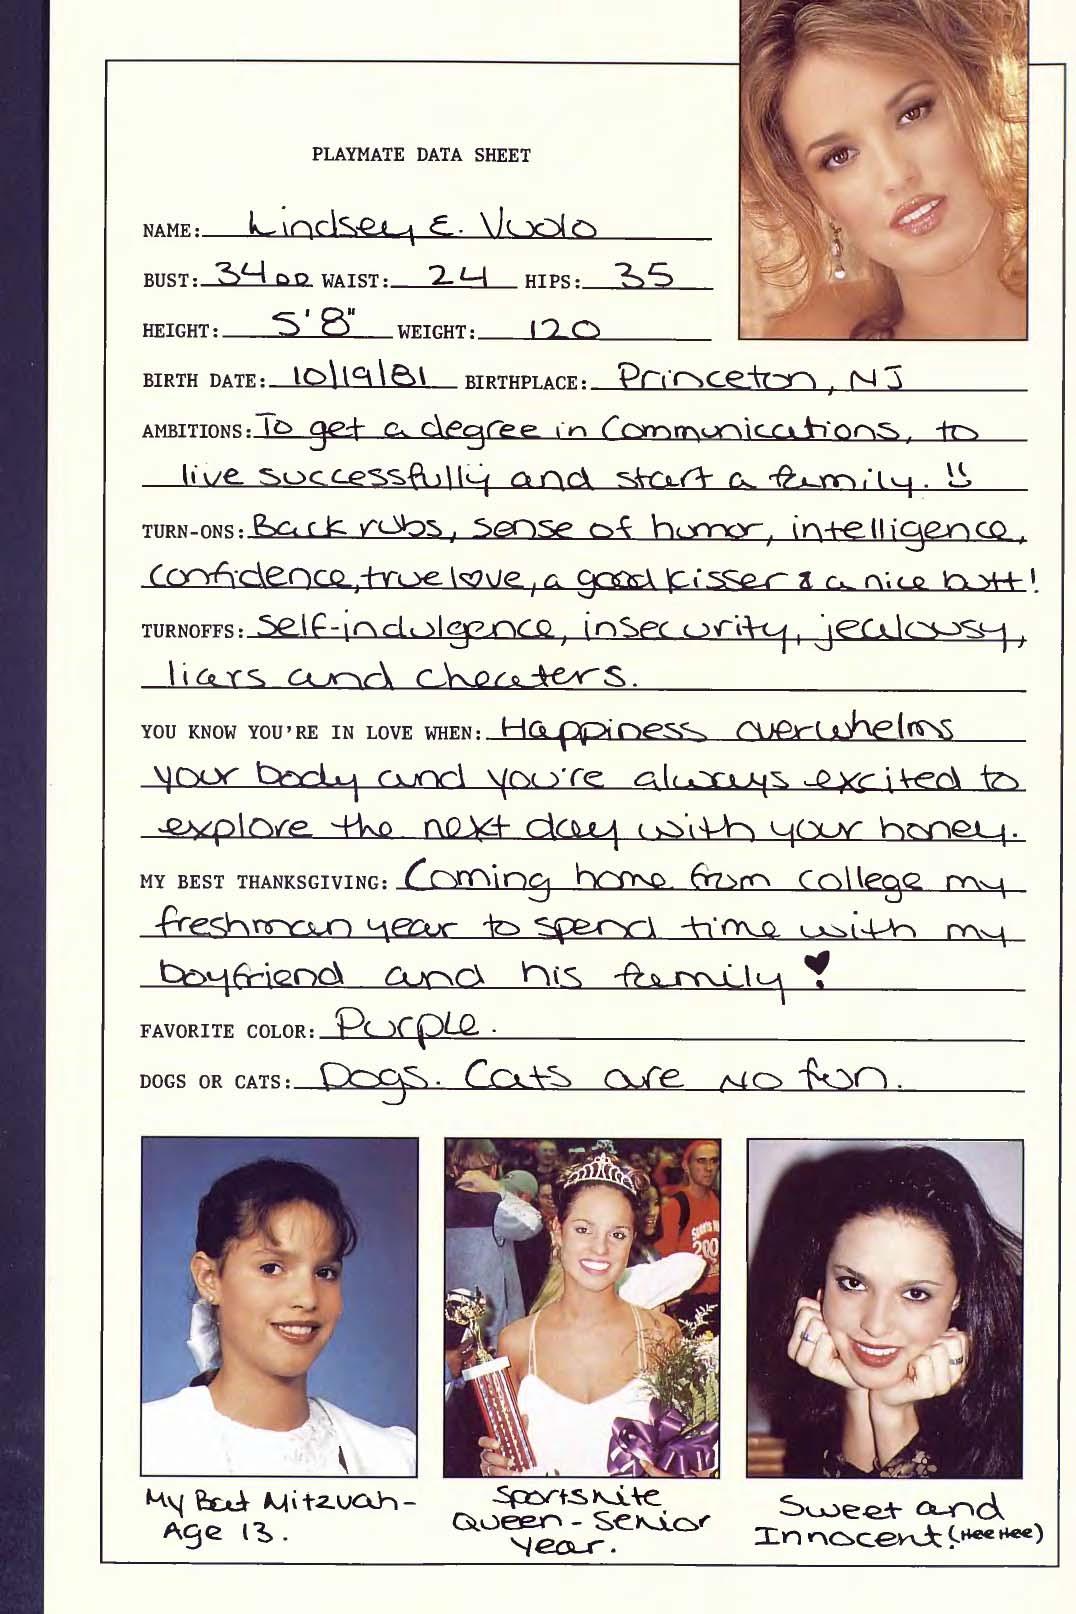 PLAYMATE DATA SHEET
NAME: Lindsey E. Vuolo
BUST: 34DD WAIST: 24 HIPS: 35
HEIGHT: 5'8" WEIGHT: 120
BIRTH DATE: 10/19/81 BIRTHPLACE: Princeton, NJ
AMBITIONS: To get a degree in Communications, to
live successfully and start a family.
TURN-ONS: Back rubs, sense of humor, intelligence,
confidence, true love, a good kisser & a nice butt!
TURNOFFS: Self-indulgence, insecurity, jealousy,
liars and cheaters.
YOU KNOW YOU'RE IN LOVE WHEN: Happiness overwhelms
your body and you're always excited to
explore the next day with your honey.
MY BEST THANKSGIVING: Coming home from college my
freshman year to spend time with my
boyfriend and his family!
FAVORITE COLOR: Purple.
DOGS OR CATS: Dogs. Cats are NO fun.
200
My Bat Mitzvah-
Age 13.
SportsNite
Queen - Senior
Year.
Sweet and
Innocent! (Hee Hee)